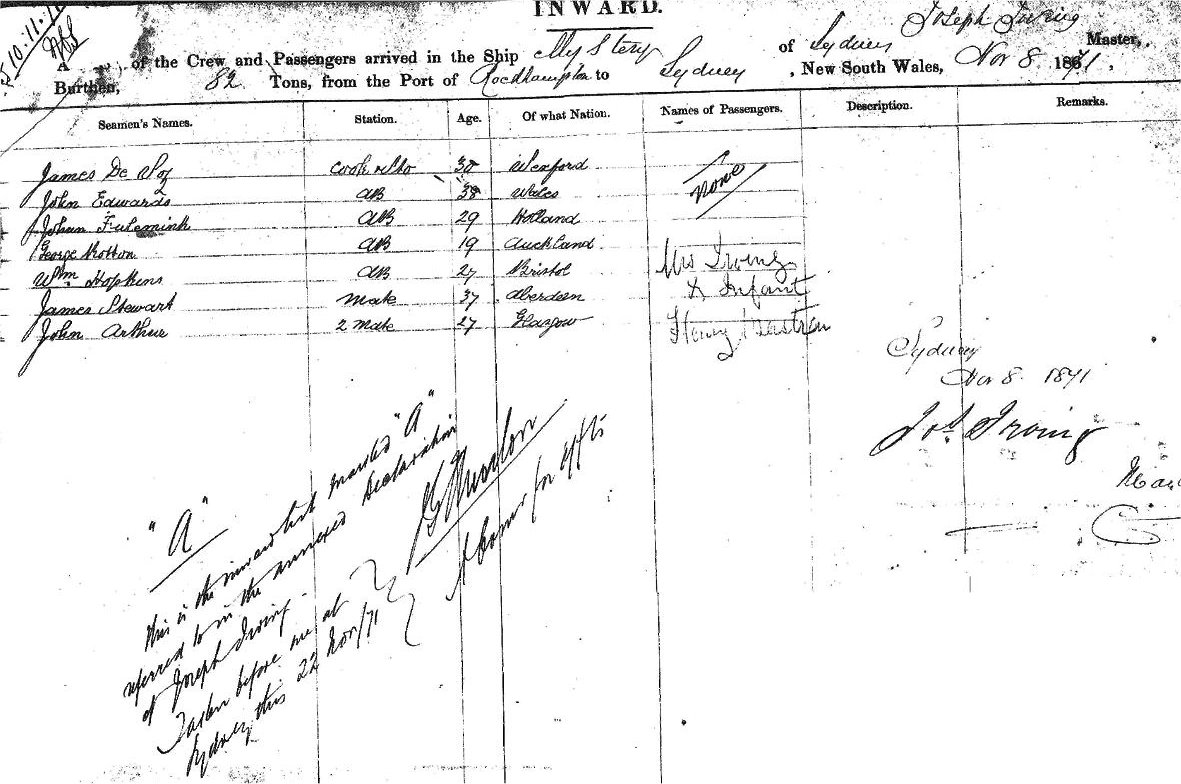 INWARD.
A of the Crew and Passengers arrived in the Ship Mystery of Sydney Joseph Irving Master,
Burthen, 82 Tons, from the Port of Rockhampton to Sydney, New South Wales, Nov 8 1871.
Seamen's Names. Station. Age. Of what Nation. Names of Passengers. Description. Remarks.
James De cook 30 Wexford None
John Edwards AB 38 Wales
Johan AB 29 Holland
George AB 19 Auckland.
Wm Hopkins AB 27 Bristol Mrs Irving
James Stewart Mate 37 Aberdeen & Infant
John Arthur 2 Mate 27 Glasgow Henry
Sydney
Nov 8 1871
Jos Irving
"A"
this is the inward list marked "A"
referred to in the annexed declaration
of Joseph Irving.
Taken before me at
Sydney this 22 Nov/71
A Comr for affts